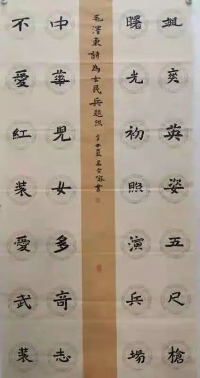 颯爽英姿五尺槍
曙光初照演兵場
中華兒女多奇志
不愛紅裝愛武裝
毛澤東詩為女民兵題照